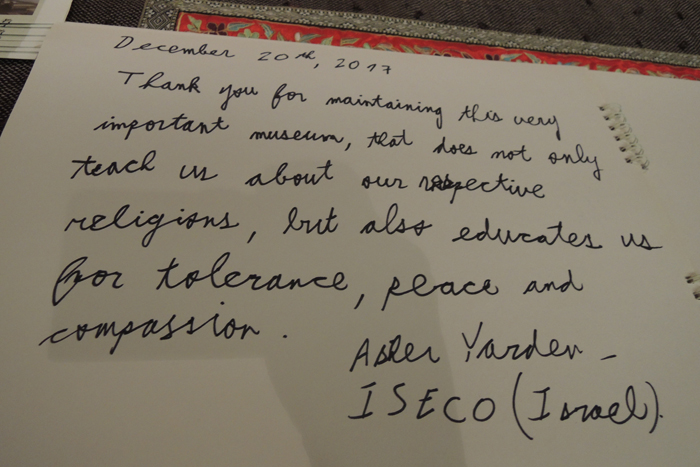 December 20th, 2017
Thank you for maintaining this very
important museum, that does not only
teach us about our respective
religions, but also educates us
for tolerance, peace and
compassion.
Asher Yarden -
ISECO (Israel).